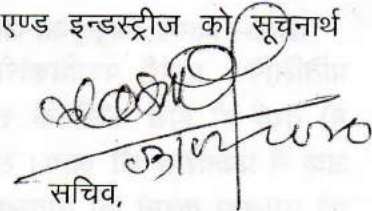 एण्ड इन्डस्ट्रीज को सूचनार्थ
सचिव,